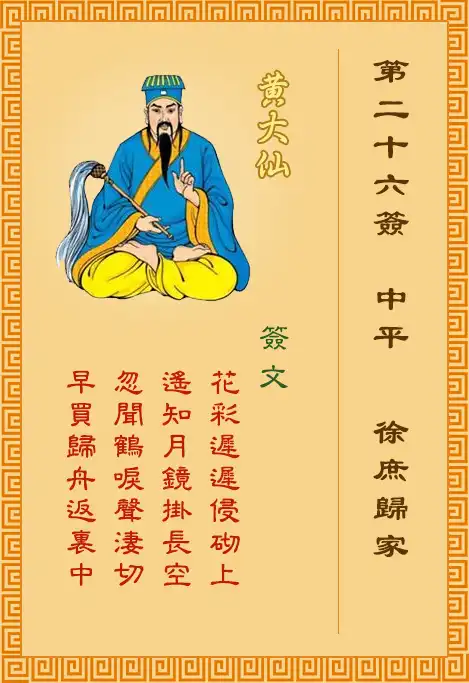 第二十六簽 中平 徐庶歸家
黃大仙
簽文
花彩遲遲侵砌上
遙知月鏡掛長空
忽聞鶴唳聲淒切
早買歸舟返裏中